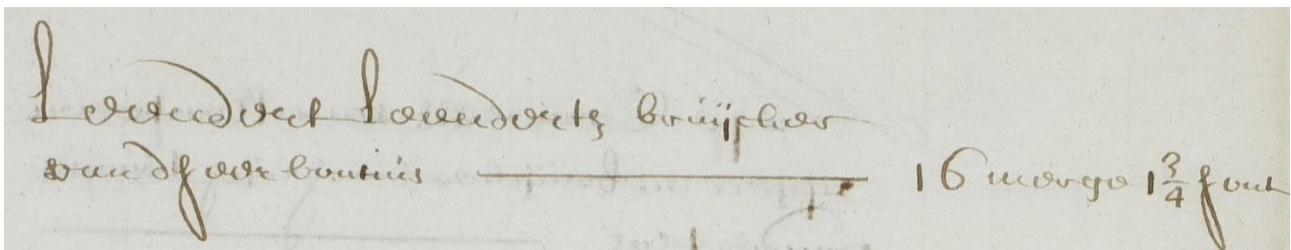 Leendert Leendertz bruijscher
van dheer bontius 16 merge 1 3/4 hont